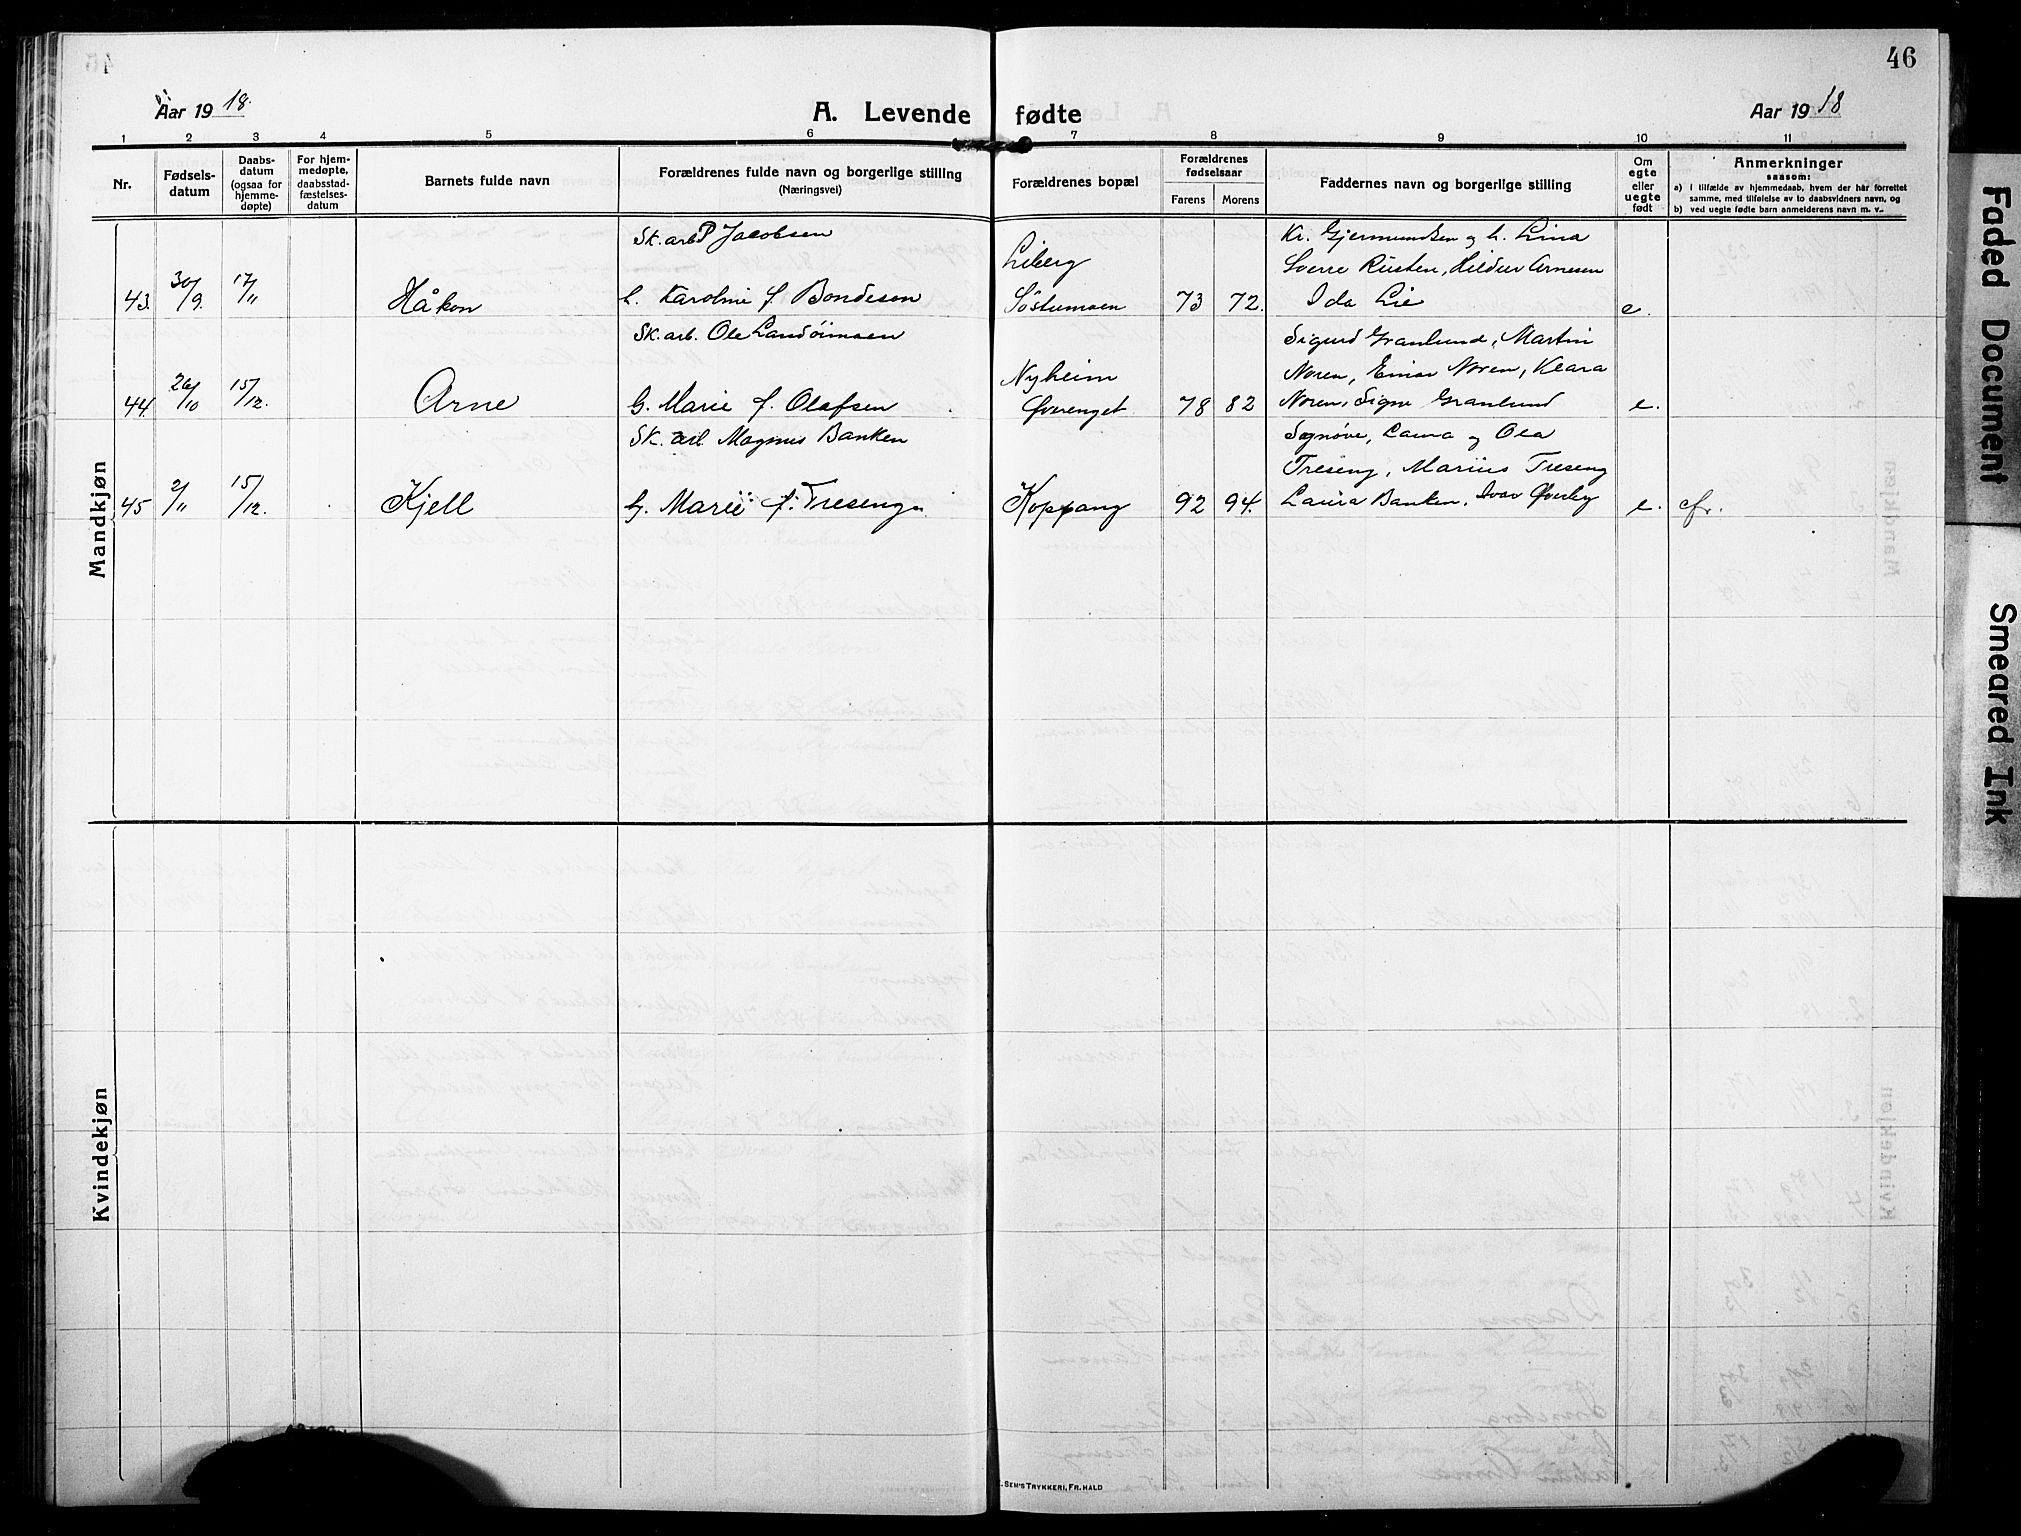 46
Aar 1918.
A. Levende fødte
Aar 1918
1 2 3 4 5 6 7 8 9 10 11
Nr.
Fødsels-
datum
Daabs-
datum
(ogsaa for
hjemme-
døpte)
For hjem-
medøpte,
daabsstad-
fæstelses-
datum
Barnets fulde navn
Forældrenes fulde navn og borgerlige stilling
(Næringsvei)
Forældrenes bopæl
Forældrenes
fødselsaar
Farens Morens
Faddernes navn og borgerlige stilling
Om
egte
eller
uegte
født
Anmerkninger
saasom:
a) i tilfælde av hjemmedaab, hvem der har forrettet
samme, med tilføielse av to daabsvidners navn, og
b) ved uegte fødte barn anmelderens navn m. v.
Mandkjøn
43. 30/9. 17/11 Håkon
Sk. arb P Jacobsen
h. Karoline f. Bondesen
Liberg
73 72.
Kr. Gjermundsen og h. Lina
Sverre Rusten, Hildur Arnesen
Ida Lie
e.
44. 26/10 15/12. Arne
Sk. arb. Ole Landsimoen
G. Marie f. Olafsen
Nyheim
Øverenget
78 82
Sigurd Granlund, Martin
Noren, Einar Noren, Klara
Noren, Signe Granlund
e.
45 2/11 15/12. Kjell
Sk. arb. Magnus Banken
G. Marie f. Treseng
Koppang
92 94.
Sognøve, Laura og Ola
Treseng, Marius Treseng
Laura Banken, Ivar Øverby
e. cfr.
Kvindekjøn
SEM'S TRYKKERI, FR. HALD
Faded Document
Smeared Ink